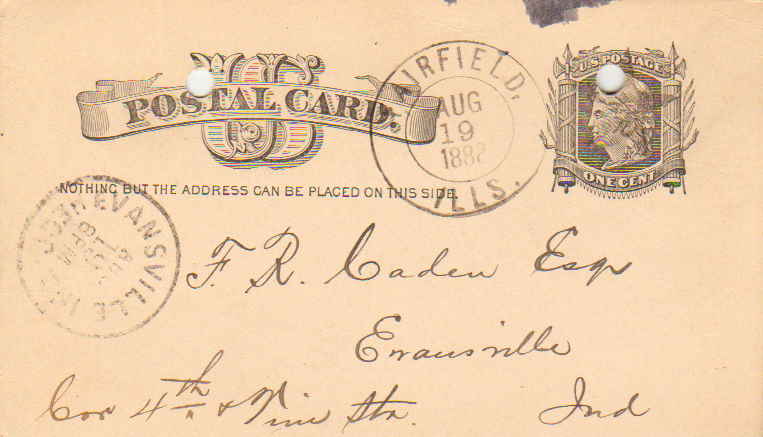 US
POSTAL CARD.
NOTHING BUT THE ADDRESS CAN BE PLACED ON THIS SIDE.
FAIRFIELD,
AUG
19
1882
ILLS.
U.S. POSTAGE
ONE CENT
EVANSVILLE IND
REC'D
F. R. Caden Esqr
Evansville
Cor 4th & Vine Sts.
Ind